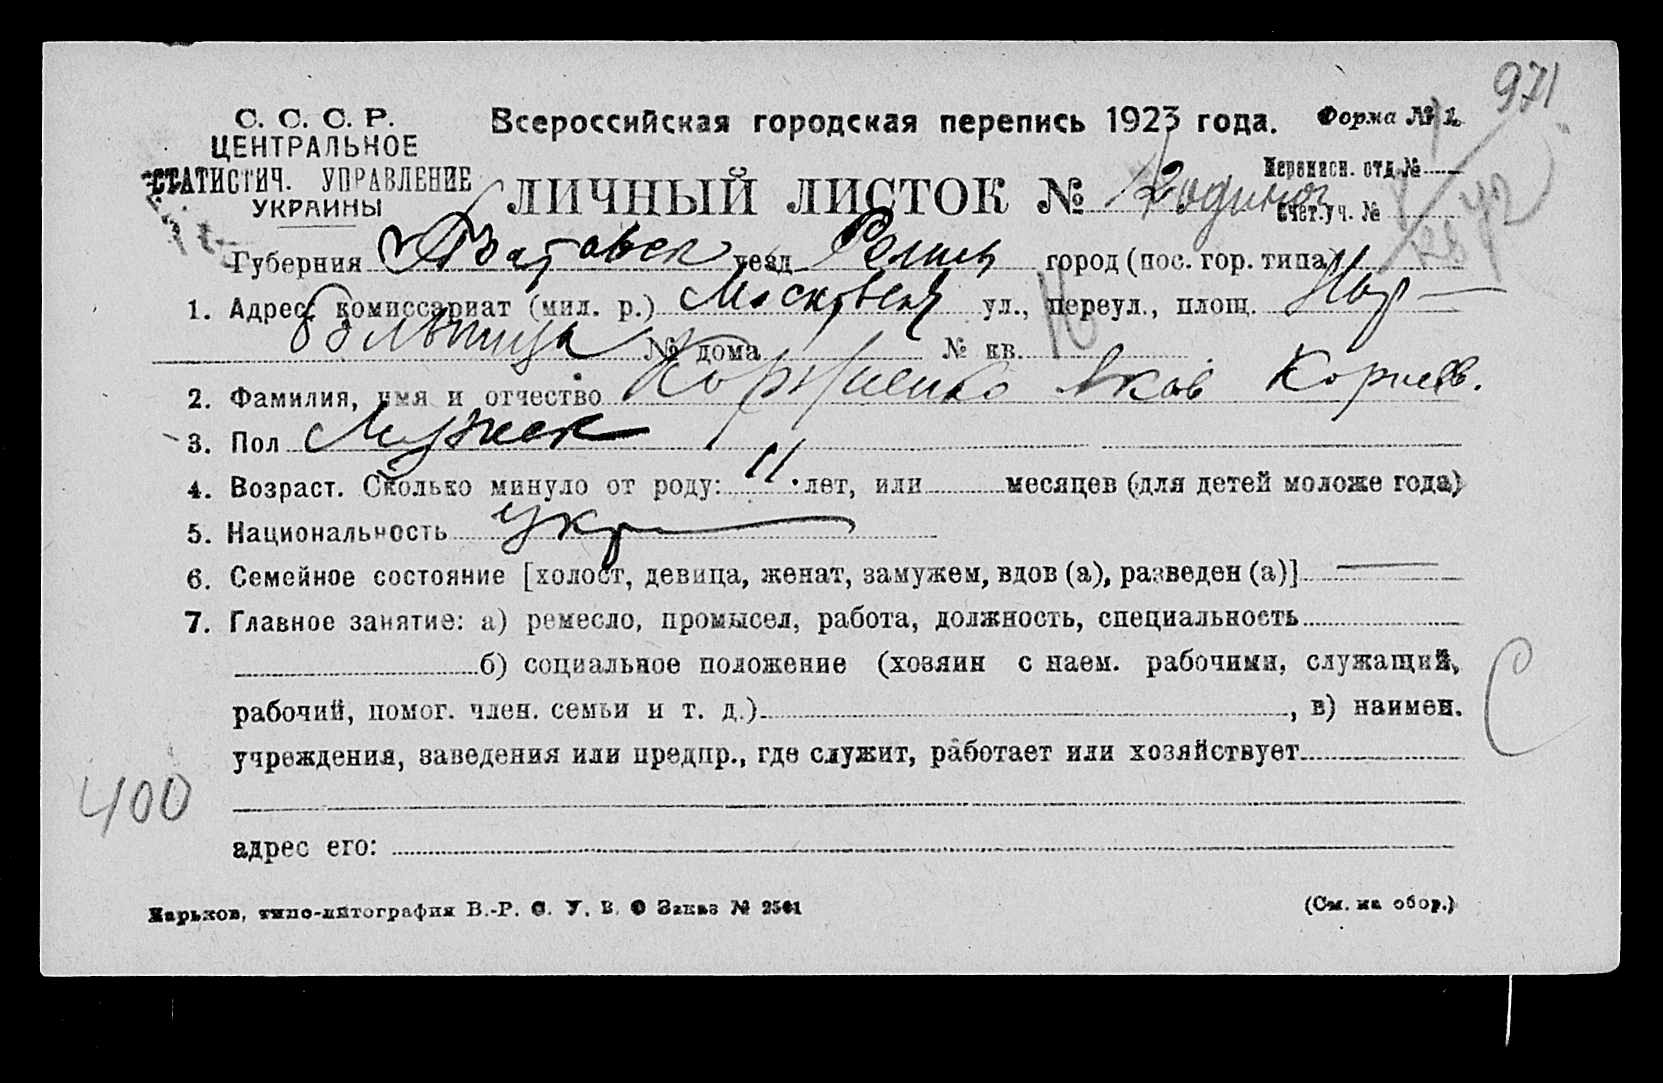 971
С. С. С. Р.
ЦЕНТРАЛЬНОЕ
СТАТИСТИЧ. УПРАВЛЕНИЕ
УКРАИНЫ
Всероссийская городская перепись 1923 года.
Форма № 1.
Переписн. отд. №
Счет. уч. №
ЛИЧНЫЙ ЛИСТОК №
Губерния Полтавск уезд Ромны город (пос. гор. типа)
1. Адрес: комиссариат (мил. р.) Московская ул., переул., площ.
больница № дома № кв.
2. Фамилия, имя и отчество Яков Корнеев.
3. Пол Мужск
4. Возраст. Сколько минуло от роду: 11 лет, или месяцев (для детей моложе года)
5. Национальность Укр
6. Семейное состояние [холост, девица, женат, замужем, вдов (а), разведен (а)]
7. Главное занятие: а) ремесло, промысел, работа, должность, специальность
б) социальное положение (хозяин с наем. рабочими, служащий,
рабочий, помог. член. семьи и т. д.), в) наимен.
учреждения, заведения или предпр., где служит, работает или хозяйствует
С
400
адрес его:
Харьков, типо-литография В.-Р. С. У. В. О Заказ № 2561
(См. на обор.)